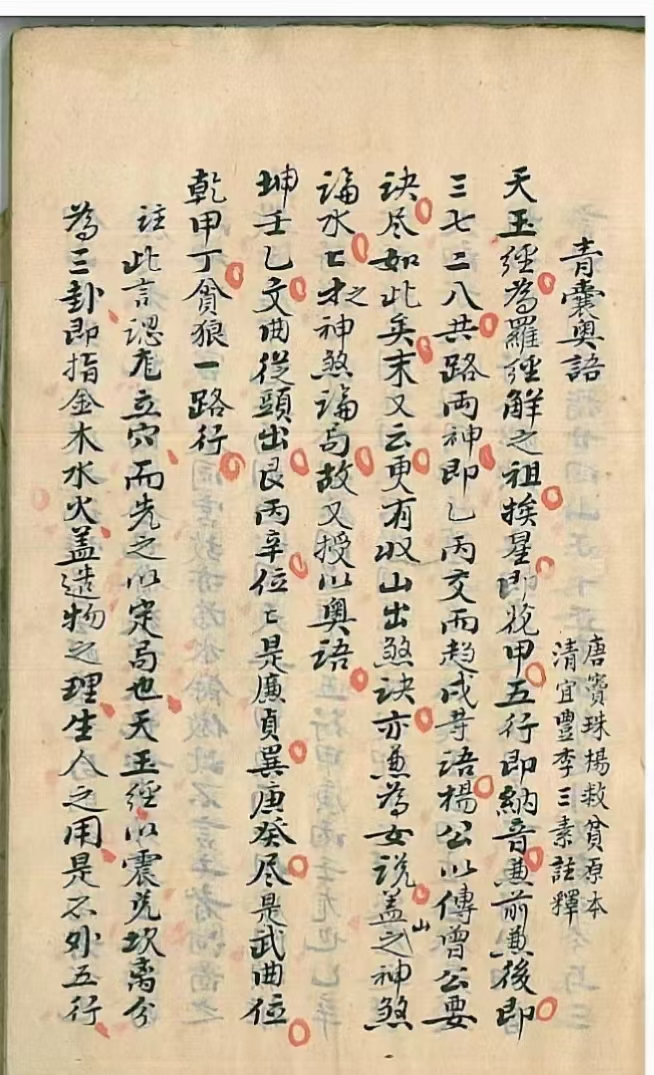 青囊奧語
唐竇珠楊救貧原本
清宜豐李三素註釋
天玉經為羅經解之祖挨星即挽甲五行即納音兼前兼後即
三七二八共路兩神即乙丙交而趋戌等語楊公以傳曾公要
訣尽如此矣末又云更有収山出煞訣亦兼為女說盖山之神煞
論水七才之神煞論局故又授以奧語
坤壬乙文曲從頭出艮丙辛位〻是廉貞巽庚癸尽是武曲位
乾甲丁貪狼一路行
註此言認龙立穴而先之以定局也天玉經以震兌坎离分
為三卦即指金木水火盖造物之理生人之用是不外五行